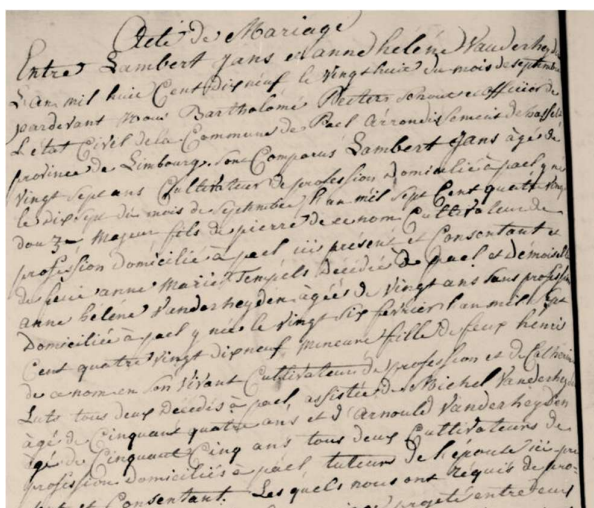 Acte de Mariage
Entre Lambert Jans et anne helene Vanderheyden
L'an mil huit Cent dix neuf le vingt huit du mois de septembre
pardevant Nous Bartholomé officier de
L'état Civel de la Commune de Pael Arrondissement de hasselt
province de Limbourg, sont Comparus Lambert Jans âgé de
vingt sept ans Cultivateur de profession Domicilié à pael y né
le dix sept du mois de septembre l'an mil sept Cent quatre vingt
douze Majeur fils de pierre de ce nom Cultivateur de
profession Domicilié à pael ici présent et Consentant et
de feue anne Marie Tempels décédée à pael et Demoiselle
anne helene Vanderheyden âgée de vingt ans Sans profession
Domiciliée à pael y née le vingt six fevrier l'an mil sept
Cent quatre vingt dix neuf mineure fille de feux henri
de ce nom en son vivant Cultivateur de profession et de Catherine
Luts tous deux décédés à pael, assistée de Michel Vanderheyden
âgé de Cinquante quatre ans et d'Arnould Vanderheyden
âgé de Cinquante Cinq ans tous deux Cultivateurs de
profession Domiciliés à pael tuteurs de l'epouse ici pre
Consentant. Les quels nous ont requis de pro-
projeté entre deux